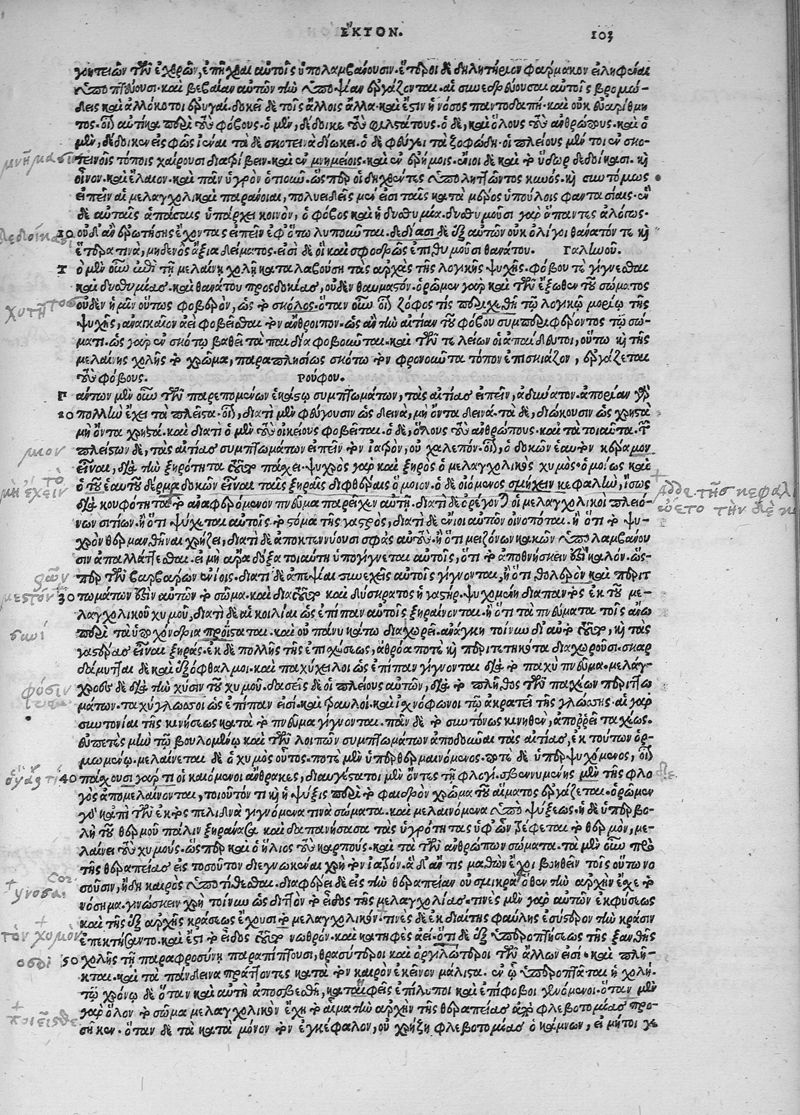 ἕκτον. 103
γοητειῶν τῶν ἐχθρῶν, ἐπῆχθαι αὐτοῖς ὑπολαμβάνουσιν. ἕτεροι δὲ δηλητήριον φάρμακον εἰληφέναι
καὶ βεβαίαν αὐτῶν τὴν ἐργάζονται. αὐτοῖς βρομώ-
δεις καὶ ἀλλόκοτοι ἐρυγαί. δοκεῖ δὲ τοῖς ἄλλοις ἄλλα. καὶ ἔστιν ἡ νόσος παντοδαπὴ. καὶ οὐκ εὐαρίθμη
τος. περὶ τοὺς φόβους. ὁ μὲν, δέδοικε τοὺς φιλτάτους. ὁ δὲ, καὶ ὅλους τοὺς ἀνθρώπους. καὶ ὁ
μὲν, εἰς φῶς ἰέναι τὰ δὲ σκοτεινὰ διώκει. ὁ δὲ φεύγει τὰ ζοφώδη. οἱ πλείους μὲν τοι ἐν σκο-
τεινοῖς τόποις χαίρουσι διατρίβειν. καὶ ἐν μνημείοις. καὶ ἐν ἐρήμοις. ἔνιοι δὲ καὶ τὸ ὕδωρ δεδοίκασι. καὶ
οἶνον. καὶ ἔλαιον. καὶ πᾶν ὑγρὸν ὁποιοῦν. ὥσπερ οἱ δηχθέντες ὑπὸ λυττῶντος κυνός. καὶ συντόμως
εἰπεῖν αἱ μελαγχολικαὶ παράνοιαι, πολυειδεῖς μέν εἰσι ταῖς κατὰ μέρος ὑπούλοις φαντασίαις. ἐν
δὲ αὐταῖς ἁπάσαις ὑπάρχει κοινὸν, ὁ φόβος καὶ ἡ δυσθυμία. δυσθυμοῦσι γὰρ ἅπαντες ἀλόγως.
10 οὐδ' ἂν ἐρωτήσης ἔχοντας εἰπεῖν ἐφ' ὅτῳ λυποῦνται. δεδίασι δὲ ἐξ αὐτῶν οὐκ ὀλίγοι θάνατόν τε καὶ
ἕτερα τινὰ, μηδενὸς ἄξια δείματος. εἰσὶ δὲ οἳ καὶ σφοδρῶς ἐπιθυμοῦσι θανάτου. Γαληνοῦ.
τῇ μελαίνῃ χολῇ καταλαβούσῃ τὰς ἀρχὰς τῆς λογικῆς ψυχῆς. φόβου τε γίγνεσθαι
καὶ δυσθυμίας. καὶ θανάτου προσδοκίας, οὐδὲν θαυμαστόν. ὁρῶμεν γὰρ καὶ τῶν ἔξωθεν τοῦ σώματος
οὐδὲν ἡμῖν οὕτως φοβερὸν, ὡς τὸ σκότος. ὅταν οὖν οἷον ζόφος τις περιχεθῇ τῷ λογικῷ μορίῳ τῆς
ψυχῆς, ἀναγκαῖον ἀεὶ φοβεῖσθαι τὸν ἄνθρωπον. ὡς ἂν τὴν αἰτίαν τοῦ φόβου συμπεριφέροντος τῷ σώ-
ματι. ὡς γὰρ ἐν σκότῳ βαθεῖ τὰ παιδία φοβοῦνται. καὶ τῶν τελείων οἱ ἀπαίδευτοι, οὕτω καὶ τὸ τῆς
μελαίνης χολῆς τὸ χρῶμα, παραπλησίως σκότῳ τὸν φρονοῦντα τόπον ἐπισκιάζον, ἐργάζεται
τοὺς φόβους. Ῥούφου.
μὲν οὖν τῶν παρεπομένων ἑκάστῳ συμπτωμάτων, τὰς αἰτίας εἰπεῖν, ἀδύνατον. ἀπορίαν γὰρ
20 πολλὴν ἔχει τὰ πλεῖστα. οἷον, διατὶ μὲν φεύγουσιν ὡς δεινὰ, μὴ ὄντα δεινά. τὰ δὲ, διώκουσιν ὡς χρηστὰ
μὴ ὄντα χρηστά. καὶ διατὶ ὁ μὲν τοὺς οἰκείους φοβεῖται. ὁ δὲ, ὅλους τοὺς ἀνθρώπους. καὶ τὰ τοιαῦτα.
πλείστων δὲ, τὰς αἰτίας συμπτωμάτων εἰπεῖν τὸν ἰατρὸν, οὐ χαλεπόν. οἷον, ὁ δοκῶν ἑαυτὸν κέραμον
εἶναι, διὰ τὴν ξηρότητα τοῦτο πάσχει. ψυχρὸς γὰρ καὶ ξηρὸς ὁ μελαγχολικὸς χυμός. ὁμοίως καὶ
ὁ τὸ ἑαυτοῦ δέρμα δοκῶν εἶναι ταῖς ξηραῖς διφθέραις ὅμοιον. ὁ δὲ οἰόμενος σμήχειν κεφαλὴν, ἴσως
διὰ κουφότητα τὸ ἀναφερόμενον πνεῦμα παρεῖχεν αὐτῇ. διατὶ δὲ ὀρέγονται οἱ μελαγχολικοὶ πλειό-
νων σιτίων. ἢ ὅτι ψύχεται αὐτοῖς τὸ στόμα τῆς γαστρὸς, διατὶ δὲ ἔνιοι αὐτῶν οἰνοπόται. ἢ ὅτι τὸ ψυ-
χρὸν θερμανθῆναι χρῄζει, διατὶ δὲ ἀποκτεννύουσι σφᾶς αὐτούς. ἢ ὅτι μειζόνων κακῶν ὑπολαμβάνου
σιν ἀπαλλάττεσθαι. εἰ μὴ ἄρα δόξα τοιαύτη ὑπογίγνεται αὐτοῖς, ὅτι τὸ ἀποθνήσκειν ἐστὶ καλόν. ὥσ-
περ τῶν βαρβάρων ἐνίοις. διατὶ δὲ ἀπεψίαι συνεχεῖς αὐτοῖς γίγνονται, ἢ ὅτι θολερὸν καὶ περιτ
30 τωμάτων ἐστὶν αὐτῶν τὸ σῶμα. καὶ διὰ τοῦτο καὶ δύσκρατος ἡ γαστήρ. ψυχομένη διαπαντὸς ἐκ τοῦ με-
λαγχολικοῦ χυμοῦ, διατὶ δὲ αἱ κοιλίαι ὡς ἐπίπαν αὐτοῖς ξηραίνονται. ἢ ὅτι τὰ πνεύματα τοῖς ἄνω
περὶ τὰ ὑποχόνδρια προίσταται. καὶ οὐ πάνυ κάτω διαχωρεῖ. ἀνάγκη τοίνυν δι' αὐτὸ τοῦτο, καὶ τὰς
γαστέρας εἶναι ξηράς. ἐκ δὲ πολλῆς τῆς ἐπισχέσεως, ἀθρόα ποτὲ καὶ περιττὴ κάτα διαχωροῦσι. σκαρ
δαμύκται δὲ καὶ ἐξόφθαλμοι. καὶ παχύχειλοι ὡς ἐπίπαν γίγνονται. διὰ τὸ παχὺ πνεῦμα. μελάγ-
χροες δὲ διὰ τὴν χύσιν τοῦ χυμοῦ. δασεῖς δὲ οἱ πλείους αὐτῶν, διὰ τὸ πλῆθος τῶν παχέων περιττω
μάτων. ταχύγλωσσοι ὡς ἐπίπαν εἰσί. καὶ τραυλοί. καὶ ἰσχνόφωνοι τῷ ἀκρατεῖ τῆς γλώσσης. αἱ γὰρ
συντονίαι τῆς κινήσεως κατὰ τὸ πνεῦμα γίγνονται. πᾶν δὲ τὸ συντόνως κινηθὲν, ἀπορρεῖ ταχέως.
τῷ βουλομένῳ καὶ τῶν λοιπῶν συμπτωμάτων ἀποδοῦναι τὰς αἰτίας, ἐκ τούτων ὁρ-
μωμένῳ. μελαίνεται δὲ ὁ χυμὸς οὗτος. ποτὲ μὲν ὑπερθερμαινόμενος. ποτὲ δὲ ὑπερψυχόμενος, οἷον
40 πάσχουσι γάρ τι οἱ καιόμενοι ἄνθρακες, διαυγέστατοι μὲν ὄντες τῇ φλογί. σβεννυμένης μὲν τῆς φλο
γὸς ἀπομελαίνονται, τοιοῦτόν τι καὶ ἡ ψύξις περὶ τὸ φαιδρὸν χρῶμα τοῦ αἵματος ἐργάζεται. ὁρῶμεν
γοῦν κᾀπὶ τῶν ἐκτὸς πελιδνὰ γιγνόμενά τινα σώματα. καὶ μελαινόμενα ὑπὸ ψύξεως. ἡ δὲ ὑπερβο-
λὴ τοῦ θερμοῦ πάλιν ξηράνασα καὶ δαπανήσασα τὰς ὑγρότητας ὑφ' ὧν τρέφεται τὸ θερμὸν, με-
λαίνει τοὺς χυμούς. ὥσπερ καὶ ὁ ἥλιος τοὺς καρπούς. καὶ τὰ τῶν ἀνθρώπων σώματα. τὰ μὲν οὖν πρὸ
τῆς θεραπείας εἰς τοσοῦτον διεγνωκέναι χρὴ τὸν ἰατρόν. ἃ δ' ἄν τις μαθὼν ἔχοι βοηθεῖν τοῖς οὕτω νο
σοῦσιν, ἤδη καιρὸς ὑποτίθεσθαι. διαφέρει δὲ εἰς τὴν θεραπείαν οὐ σμικρὰ ὅθεν τὴν ἀρχὴν ἔχε τὸ
νόσημα. γνώσκειν χρὴ τοίνυν ὡς διττὸν τὸ εἶδος τῆς μελαγχολίας. τινὲς μὲν γὰρ αὐτῶν ἐκ φύσεως
καὶ τῆς ἐξ ἀρχῆς κράσεως ἔχουσι τὸ μελαγχολικόν. τινὲς δὲ ἐκ διαίτης φαύλης ἐς ὕστερον τὴν κρᾶσιν
ἐπεκτήσαντο. καὶ ἔστι τὸ εἶδος τοῦτο νωθρόν. καὶ κατηφὲς ἀεί. ὅτι δὲ ἐξ ὑπεροπτήσεως τῆς ξανθῆς
50 χολῆς τῇ παραφροσύνῃ παραπίπτουσι, θρασύτεροι καὶ ὀργιλώτεροι τῶν ἄλλων εἰσί. καὶ πλῆ-
κται. καὶ τὰ πάνδεινα πράττοντες κατὰ τὸν καιρὸν ἐκεῖνον μάλιστα. ἐν ᾧ ὑπεροπτᾶται ἡ χολή.
τῷ χρόνῳ δὲ ὅταν καὶ αὐτὴ ἀποσβεσθῇ, κατηφεῖς ἐπίλυποι καὶ ἐπίφοβοι γενόμενοι. ὅταν μὲν
γὰρ ὅλον τὸ σῶμα μελαγχολικὸν ἔχῃ τὸ αἷμα τὴν ἀρχὴν τῆς θεραπείας ἀπὸ φλεβοτομίας προ-
σῆκεν. ὅταν δὲ τὰ κατὰ μόνον τὸν ἐγκέφαλον, οὐ χρῄζει φλεβοτομίας ὁ κάμνων, εἰ μήτοι γε